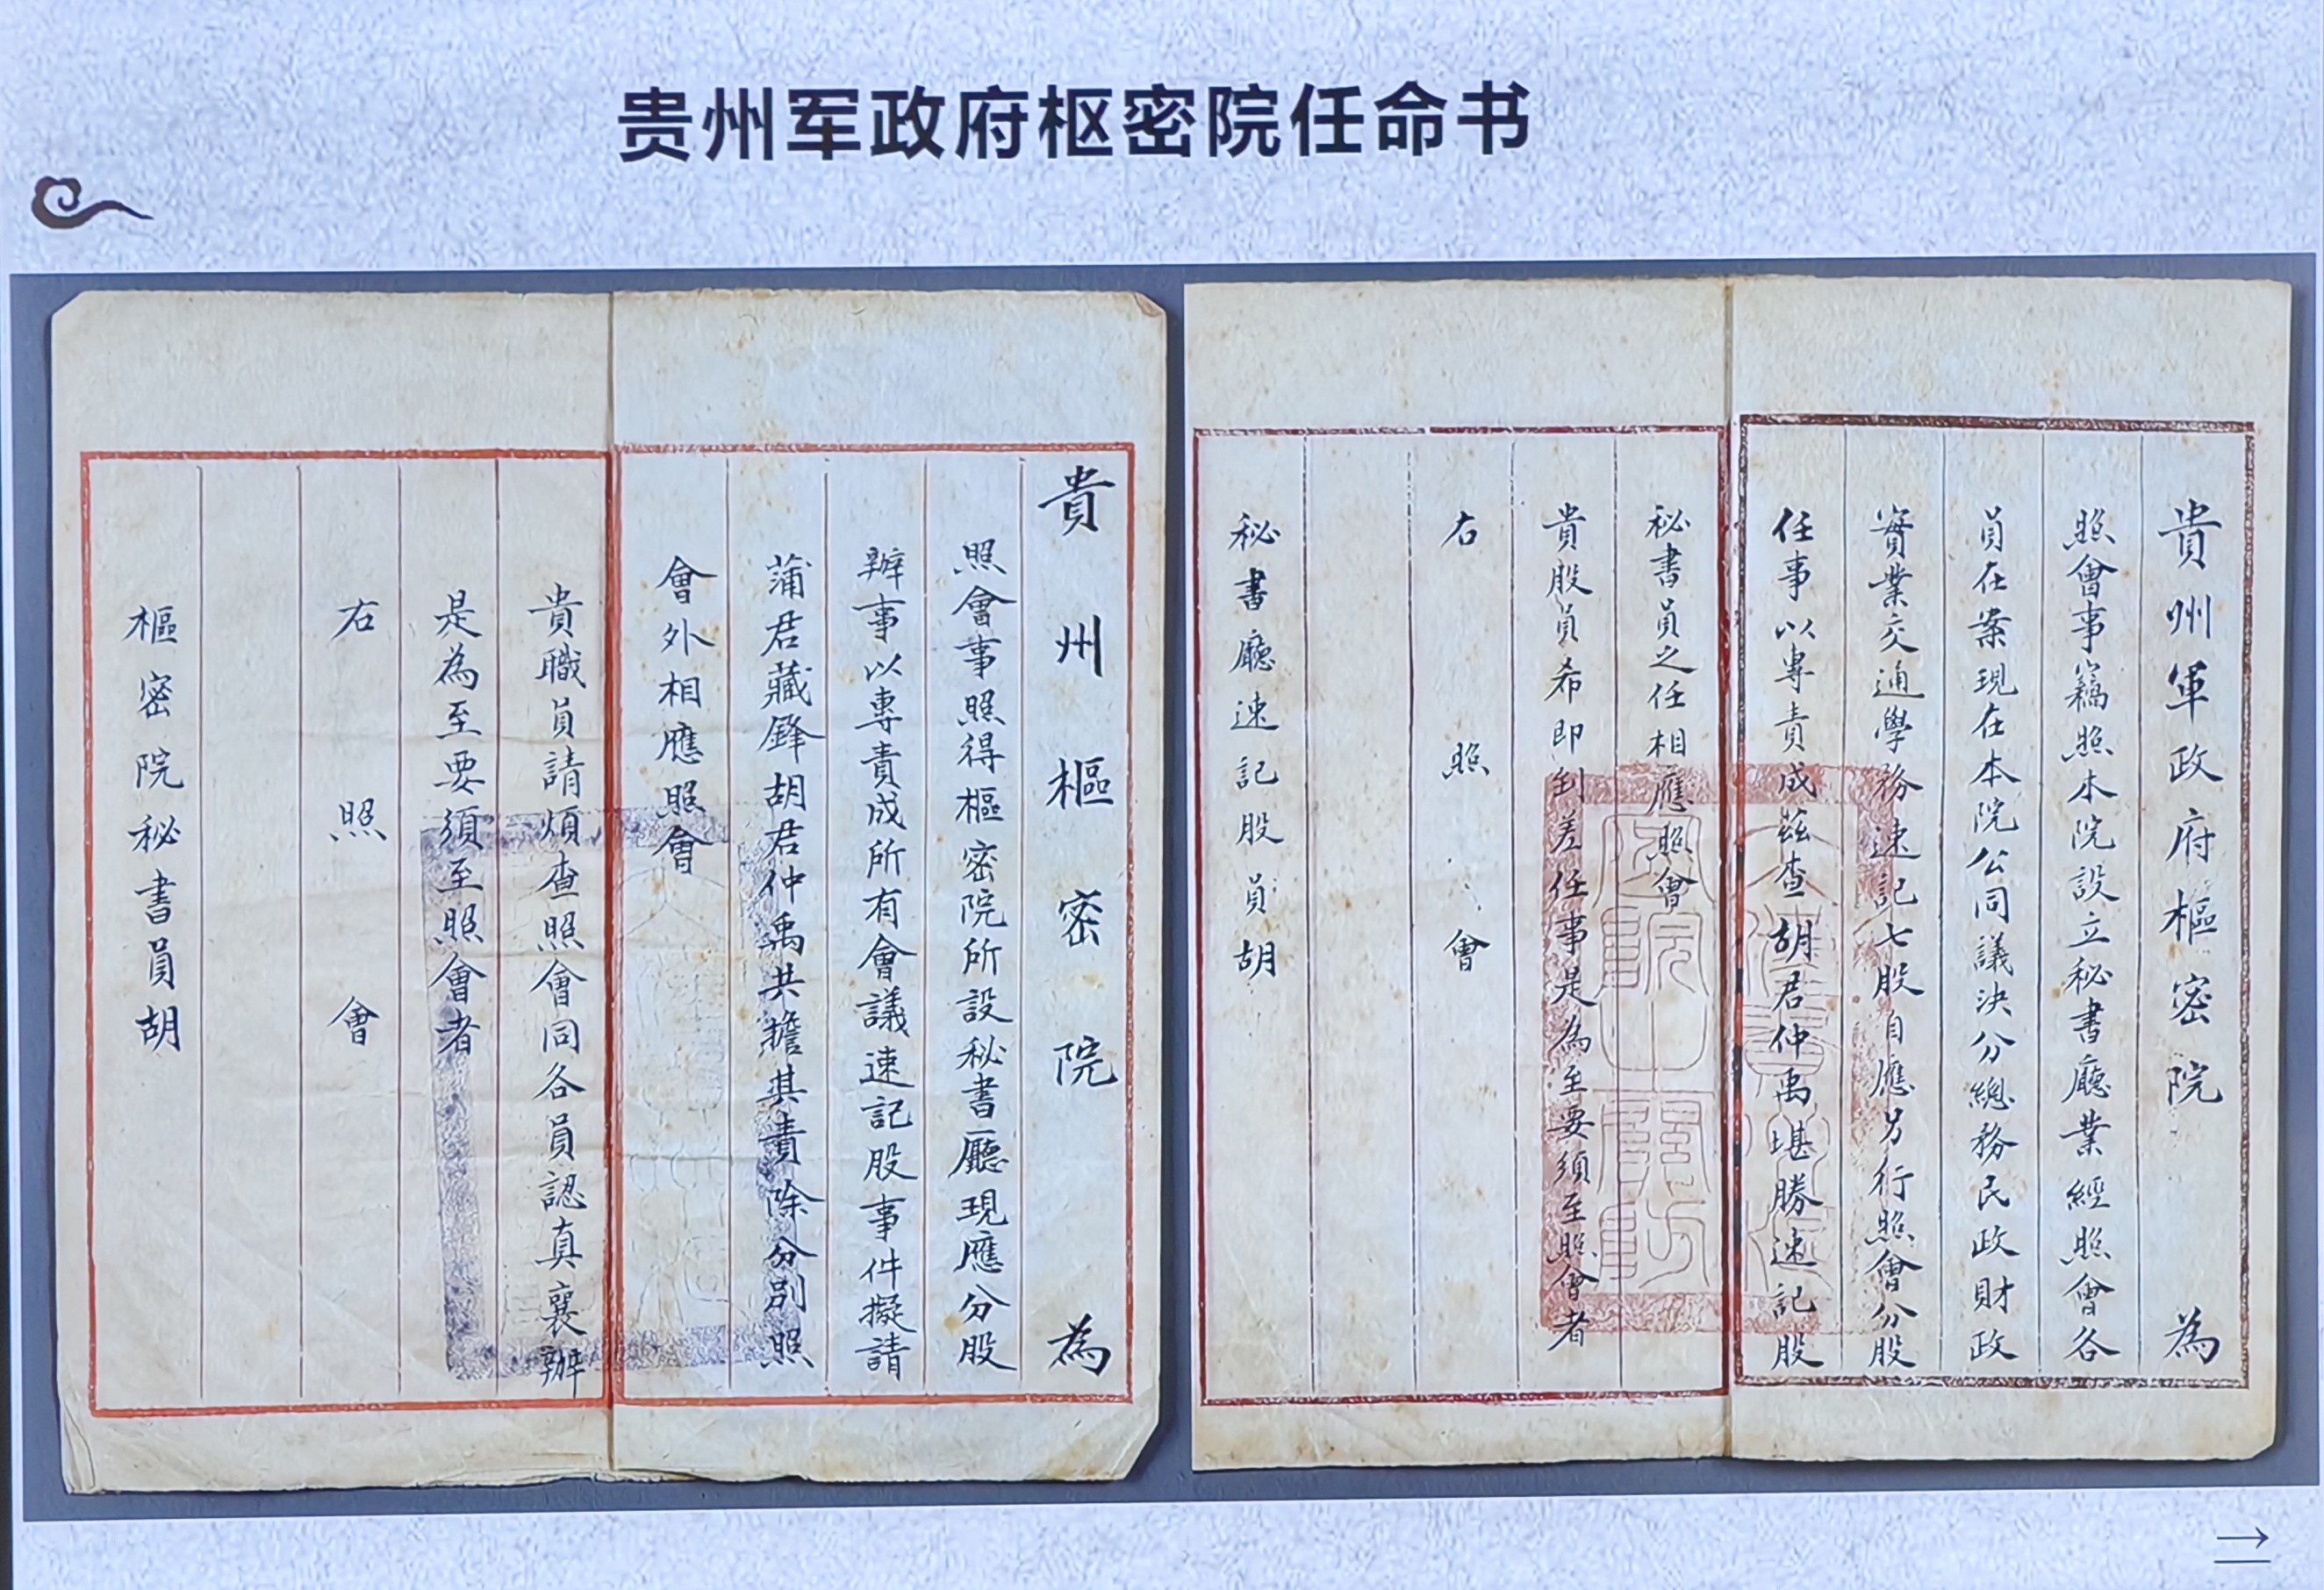 贵州军政府枢密院任命书
貴州軍政府樞密院 為
照會事竊照本院設立秘書廳業經照會各
員在案現在本院公同議決分總務民政財政
實業交通學務速記七股自應另行照會分股
任事以專責成茲查胡君仲禹堪勝速記股
秘書員之任相應照會
貴股員希即到差任事是為至要須至照會者
右 照 會
秘書廳速記股員胡
貴州樞密院 為
照會事照得樞密院所設秘書廳現應分股
辦事以專責成所有會議速記股事件擬請
蒲君藏鋒胡君仲禹共擔其責除分別照
會外相應照會
貴職員請煩查照會同各員認真襄辦
是為至要須至照會者
右 照 會
樞密院秘書員胡